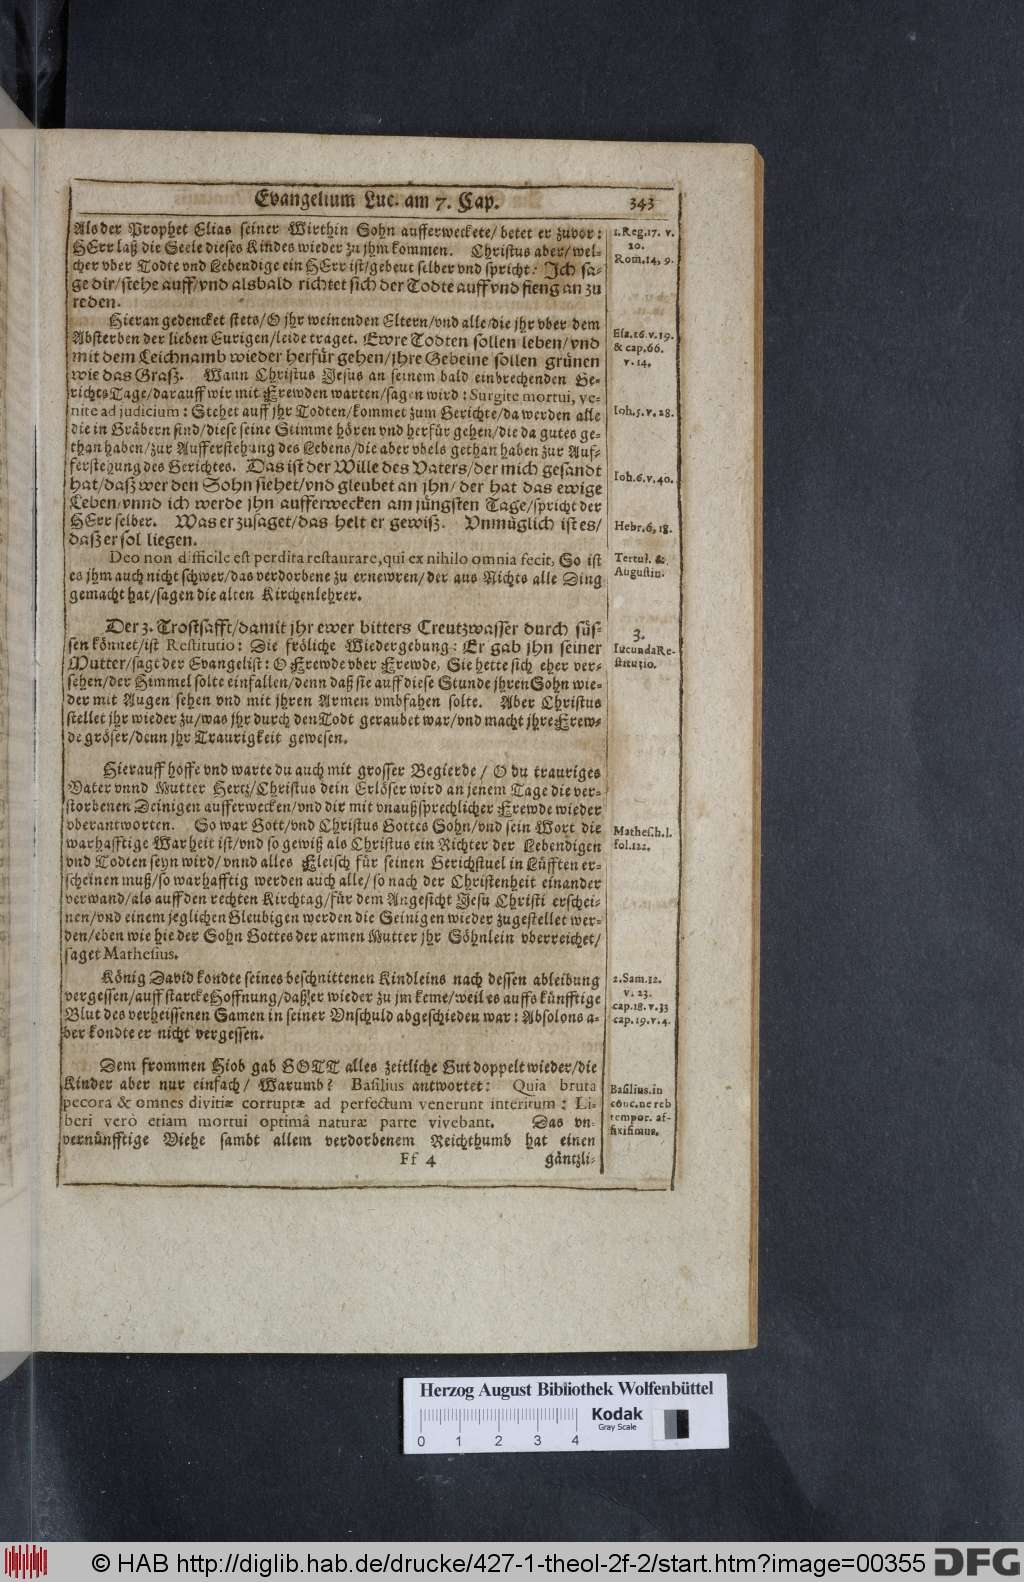 Evangelium Luc. am 7. Cap. 343
Als der Prophet Elias seiner Wirthin Sohn aufferweckete/ betet er zuvor:
HErr laß die Seele dieses Kindes wieder zu jhm kommen. Christus aber/ wel-
cher vber Todte vnd Lebendige ein HErr ist/ gebeut selber vnd spricht: Jch sa-
ge dir/ stehe auff/ vnd alsbald richtet sich der Todte auff vnd fieng an zu
reden.
1. Reg. 17. v.
20.
Rom. 14, 9.
Hieran gedencket stets/ O jhr weinenden Eltern/ vnd alle/ die jhr vber dem
Absterben der lieben Eurigen/ leide traget. Ewre Todten sollen leben/ vnd
mit dem Leichnamb wieder herfür gehen/ jhre Gebeine sollen grünen
wie das Graß. Wann Christus Jesus an seinem bald einbrechenden Ge-
richts Tage/ darauff wir mit Frewden warten/ sagen wird: Surgite mortui, ve-
nite ad judicium: Stehet auff jhr Todten/ kommet zum Gerichte/ da werden alle
die in Gräbern sind/ diese seine Stimme hören vnd herfür gehen/ die da gutes ge-
than haben/ zur Aufferstehung des Lebens/ die aber vbels gethan haben zur Auf-
ferstehung des Gerichtes. Das ist der Wille des Vaters/ der mich gesandt
hat/ daß wer den Sohn siehet/ vnd gleubet an jhn/ der hat das ewige
Leben/ vnnd ich werde jhn aufferwecken am jüngsten Tage/ spricht der
HErr selber. Was er zusaget/ das helt er gewiß. Vnmüglich ist es/
daß er sol liegen.
Esa. 26. v. 19.
& cap. 66.
v. 14.
Ioh. 5. v. 28.
Ioh. 6. v. 40.
Hebr. 6, 18.
Deo non difficile est perdita restaurare, qui ex nihilo omnia fecit, So ist
es jhm auch nicht schwer/ das verdorbene zu ernewren/ der aus Nichts alle Ding
gemacht hat/ sagen die alten Kirchenlehrer.
Tertul. &
Augustin.
Der 3. Trostsafft/ damit jhr ewer bitters Creutzwasser durch süs-
sen könnet/ ist Restitutio: Die fröliche Wiedergebung: Er gab jhn seiner
Mutter/ sagt der Evangelist: O Frewde vber Frewde, Sie hette sich eher ver-
sehen/ der Himmel solte einfallen/ denn daß sie auff diese Stunde jhren Sohn wie-
der mit Augen sehen vnd mit jhren Armen vmbfahen solte. Aber Christus
stellet jhr wieder zu/ was jhr durch den Todt geraubet war/ vnd macht jhre Frew-
de gröser/ denn jhr Traurigkeit gewesen.
3.
Iucunda Re-
stitutio.
Hierauff hoffe vnd warte du auch mit grosser Begierde/ O du trauriges
Vater vnnd Mutter Hertz/ Christus dein Erlöser wird an jenem Tage die ver-
storbenen Deinigen aufferwecken/ vnd dir mit vnaußsprechlicher Frewde wieder
vberantworten. So war Gott/ vnd Christus Gottes Sohn/ vnd sein Wort die
warhafftige Warheit ist/ vnd so gewiß als Christus ein Richter der Lebendigen
vnd Todten seyn wird/ vnnd alles Fleisch für seinen Gerichstuel in Lüfften er-
scheinen muß/ so warhafftig werden auch alle/ so nach der Christenheit einander
verwand/ als auff den rechten Kirchtag/ für dem Angesicht Jesu Christi erschei-
nen/ vnd einem jeglichen Gleubigen werden die Seinigen wieder zugestellet wer-
den/ eben wie hie der Sohn Gottes der armen Mutter jhr Söhnlein vberreichet/
saget Mathesius.
Mathes. h. l.
fol. 122.
König David kondte seines beschnittenen Kindleins nach dessen ableibung
vergessen/ auff starcke Hoffnung/ daß er wieder zu jm keme/ weil es auffs künfftige
Blut des verheissenen Samen in seiner Vnschuld abgeschieden war: Absolons a-
ber kondte er nicht vergessen.
2. Sam. 12.
v. 23.
cap. 18. v. 33
cap. 19. v. 4.
Dem frommen Hiob gab GOTT alles zeitliche Gut doppelt wieder/ die
Kinder aber nur einfach/ Warumb? Basilius antwortet: Quia bruta
pecora & omnes divitiæ corruptæ ad perfectum venerunt interitum: Li-
beri verò etiam mortui optimâ naturæ parte vivebant. Das vn-
vernünfftige Viehe sambt allem verdorbenem Reichthumb hat einen
Basilius. in
conc. ne reb
tempor. af-
fixisimus.
Ff 4 gäntzli-
Herzog August Bibliothek Wolfenbüttel
Kodak
Gray Scale
0 1 2 3 4
© HAB http://diglib.hab.de/drucke/427-1-theol-2f-2/start.htm?image=00355 DFG